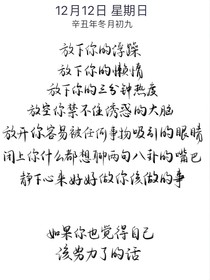 12月12日 星期日
辛丑年冬月初九
放下你的浮躁
放下你的懒惰
放下你的三分钟热度
放空你禁不住诱惑的大脑
放开你容易被任何事物吸引的眼睛
闭上你什么都想聊两句八卦的嘴巴
静下心来好好做你该做的事
如果你也觉得自己
该努力了的话